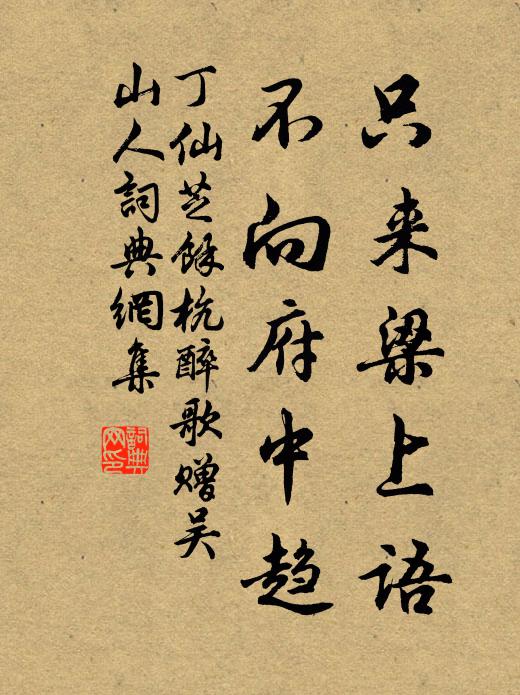 只来梁上語
不向府中趋
丁仙芝餘杭醉歌赠吴
山人詞典網集
詞典網印